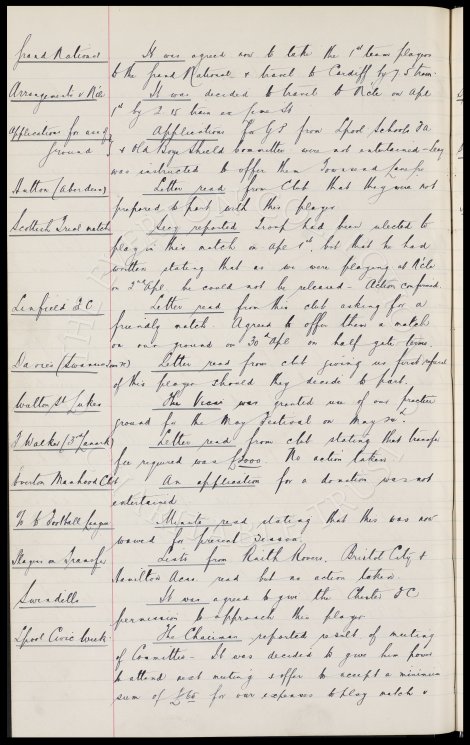 Grand National
It was agreed now to take the 1st team players
to the Grand National & travel to Cardiff by 7.5 train.
Arrangements v N'cle
It was decided to travel to N'cle on Apl
1st by 2.15 train ex Lime St
Application for use of
ground
Applications for G.P. from Lpool Schools FA
& Old Boys Shield Committee were not entertained - Secy
was instructed to offer them Townsend Lane for
Hutton (Aberdeen)
Letter read from Club that they were not
prepared to part with this player
Scottish Trial match
Secy reported Troup had been selected to
play in this match on Apl 1st, but that he had
written stating that as we were playing at N'cle
on 3rd Apl, he could not be released - Action confirmed.
Linfield F.C.
Letter read from this club asking for a
friendly match. Agreed to offer them a match
on our ground on 30th Apl on half gate terms.
Davies (Swansea Town)
Letter read from club giving us first refusal
of this player should they decide to part.
Walton St Lukes
The Vicar was granted use of our practice
ground for the May Festival on May 20th.
J Walker (3rd Lanark)
Letter read from club stating that transfer
fee required was £5000. No action taken
Everton Manhood Club
An application for a donation was not
entertained
Football League
Minute read stating that this was now
waived for present season.
Players on Transfer
Lists from Raith Rovers, Bristol City &
Hamilton Acas read but no action taken.
Swindells
It was agreed to give the Chester FC
permission to approach this player
Lpool Civic Week
The Chairman reported result of meeting
of Committee - It was decided to give him power
to attend next meeting & offer to accept a minimum
sum of for our expenses to play match v